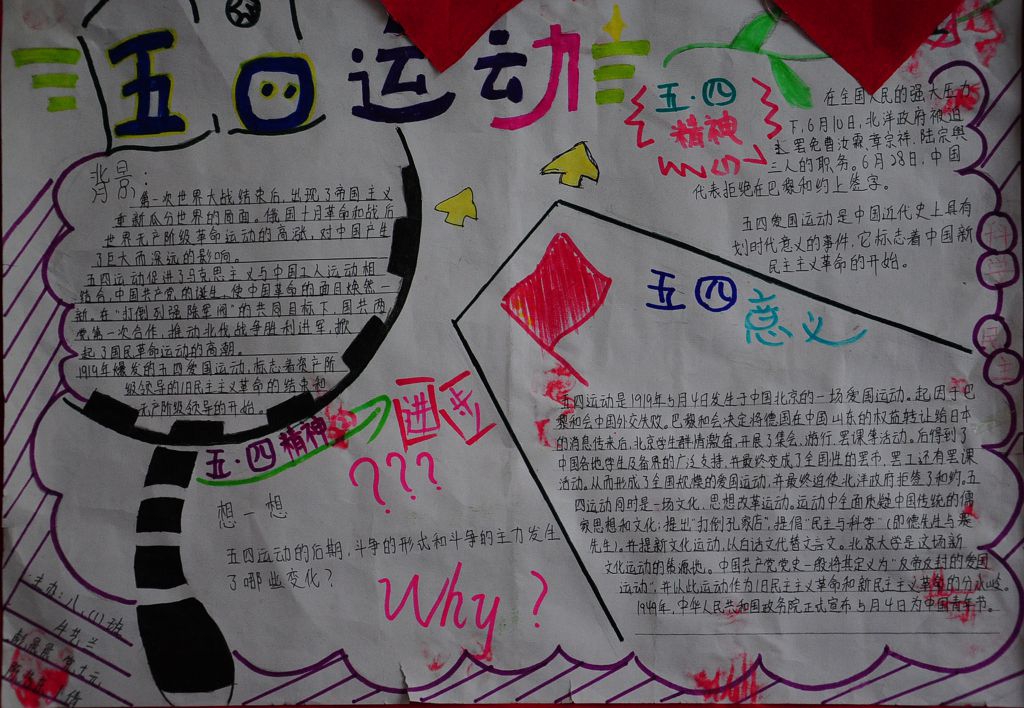 五四运动
背景:
第一次世界大战结束后,出现了帝国主义
重新瓜分世界的局面。俄国十月革命和战后
世界无产阶级革命运动的高涨,对中国产生
了巨大而深远的影响。
五四运动促进了马克思主义与中国工人运动相
结合,中国共产党的诞生,使中国革命的面目焕然一
新。在“打倒列强除军阀”的共同目标下,国共两
党第一次合作,推动北伐战争胜利进军,掀
起了国民革命运动的高潮。
1919年爆发的五四爱国运动,标志着资产阶
级领导的旧民主主义革命的结束和
无产阶级领导的开始。
五·四精神
进步
???
想一想
五四运动的后期,斗争的形式和斗争的主力发生
了哪些变化?
Why?
五·四
精神
(1)
在全国人民的强大压力
下,6月10日,北洋政府被迫
罢免曹汝霖、章宗祥、陆宗舆
三人的职务。6月28日,中国
代表拒绝在巴黎和约上签字。
五四爱国运动是中国近代史上具有
划时代意义的事件,它标志着中国新
民主主义革命的开始。
科
学
民
主
五四意义
五四运动是1919年5月4日发生于中国北京的一场爱国运动。起因于巴
黎和会中国外交失败。巴黎和会决定将德国在中国山东的权益转让给日本
的消息传来后,北京学生群情激奋,开展了集会、游行、罢课等活动。后得到了
中国各地学生及各界的广泛支持,并最终变成了全国性的罢市,罢工还有罢课
活动。从而形成了全国规模的爱国运动,并最终迫使北洋政府拒签了和约。五
四运动同时是一场文化、思想改革运动。运动中全面质疑中国传统的儒
家思想和文化,提出“打倒孔家店”,提倡“民主与科学”(即德先生与赛
先生)。并提新文化运动,以白话文代替文言文。北京大学是这场新
文化运动的策源地。中国共产党党史一般将其定义为“反帝反封的爱国
运动”,并以此运动作为旧民主主义革命和新民主主义革命的分水岭。
1949年,中华人民共和国政务院正式宣布5月4日为中国青年节。
主办:八.(1)班